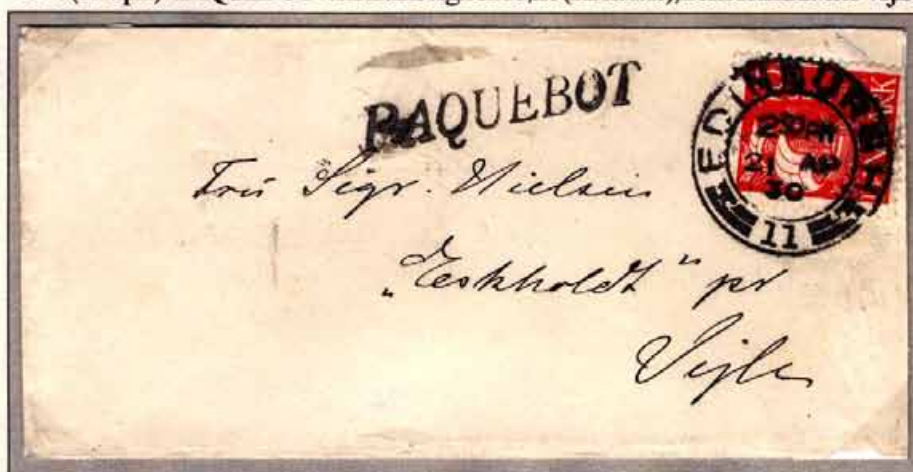 PAQUEBOT
EDINBURGH
2 30 PM
21 AP
30
11
Fru Sigr. Nielsen
„Eeskholdt“ pr
Vejle